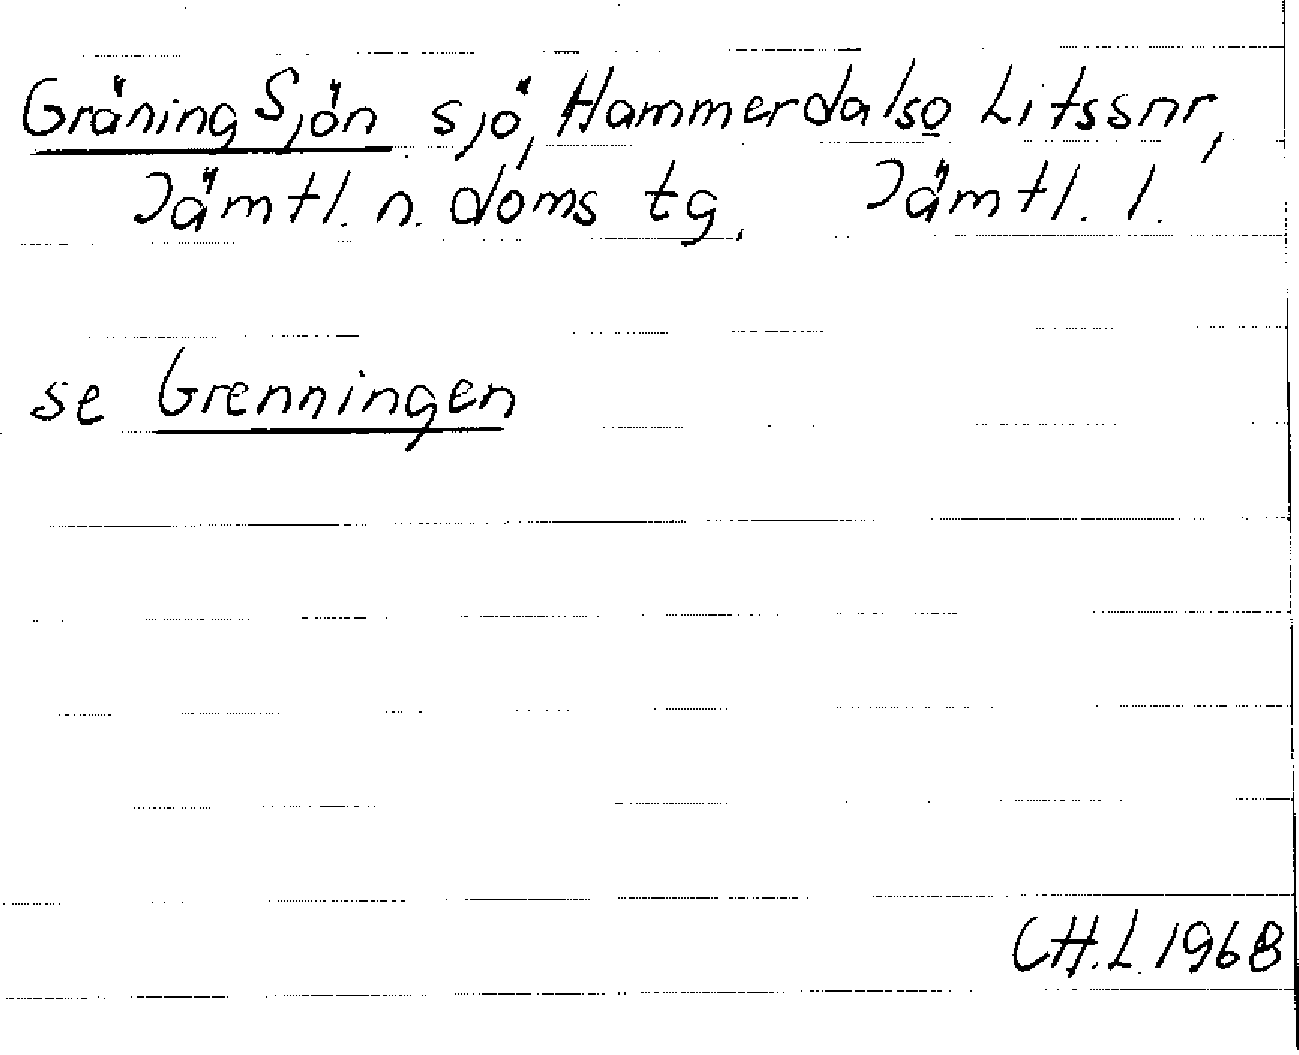 Gräning Sjön sjö, Hammerdals o Litss nr,
Jämtl. n. doms tg. Jämtl. l.
se Grenningen
C H. L. 1968